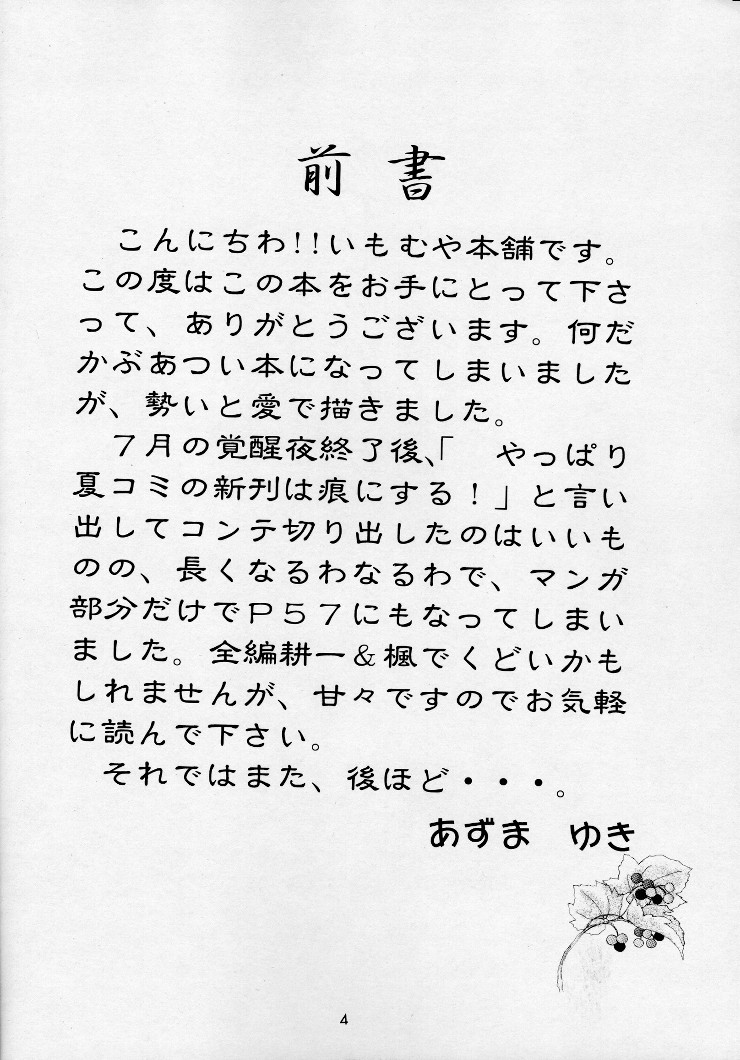 前書
こんにちわ!!いもむや本舗です。
この度はこの本をお手にとって下さ
って、ありがとうございます。何だ
かぶあつい本になってしまいました
が、勢いと愛で描きました。
７月の覚醒夜終了後、「　やっぱり
夏コミの新刊は痕にする！」と言い
出してコンテ切り出したのはいいも
のの、長くなるわなるわで、マンガ
部分だけでＰ５７にもなってしまい
ました。全編耕一＆楓でくどいかも
しれませんが、甘々ですのでお気軽
に読んで下さい。
それではまた、後ほど・・・。
あずま　ゆき
4